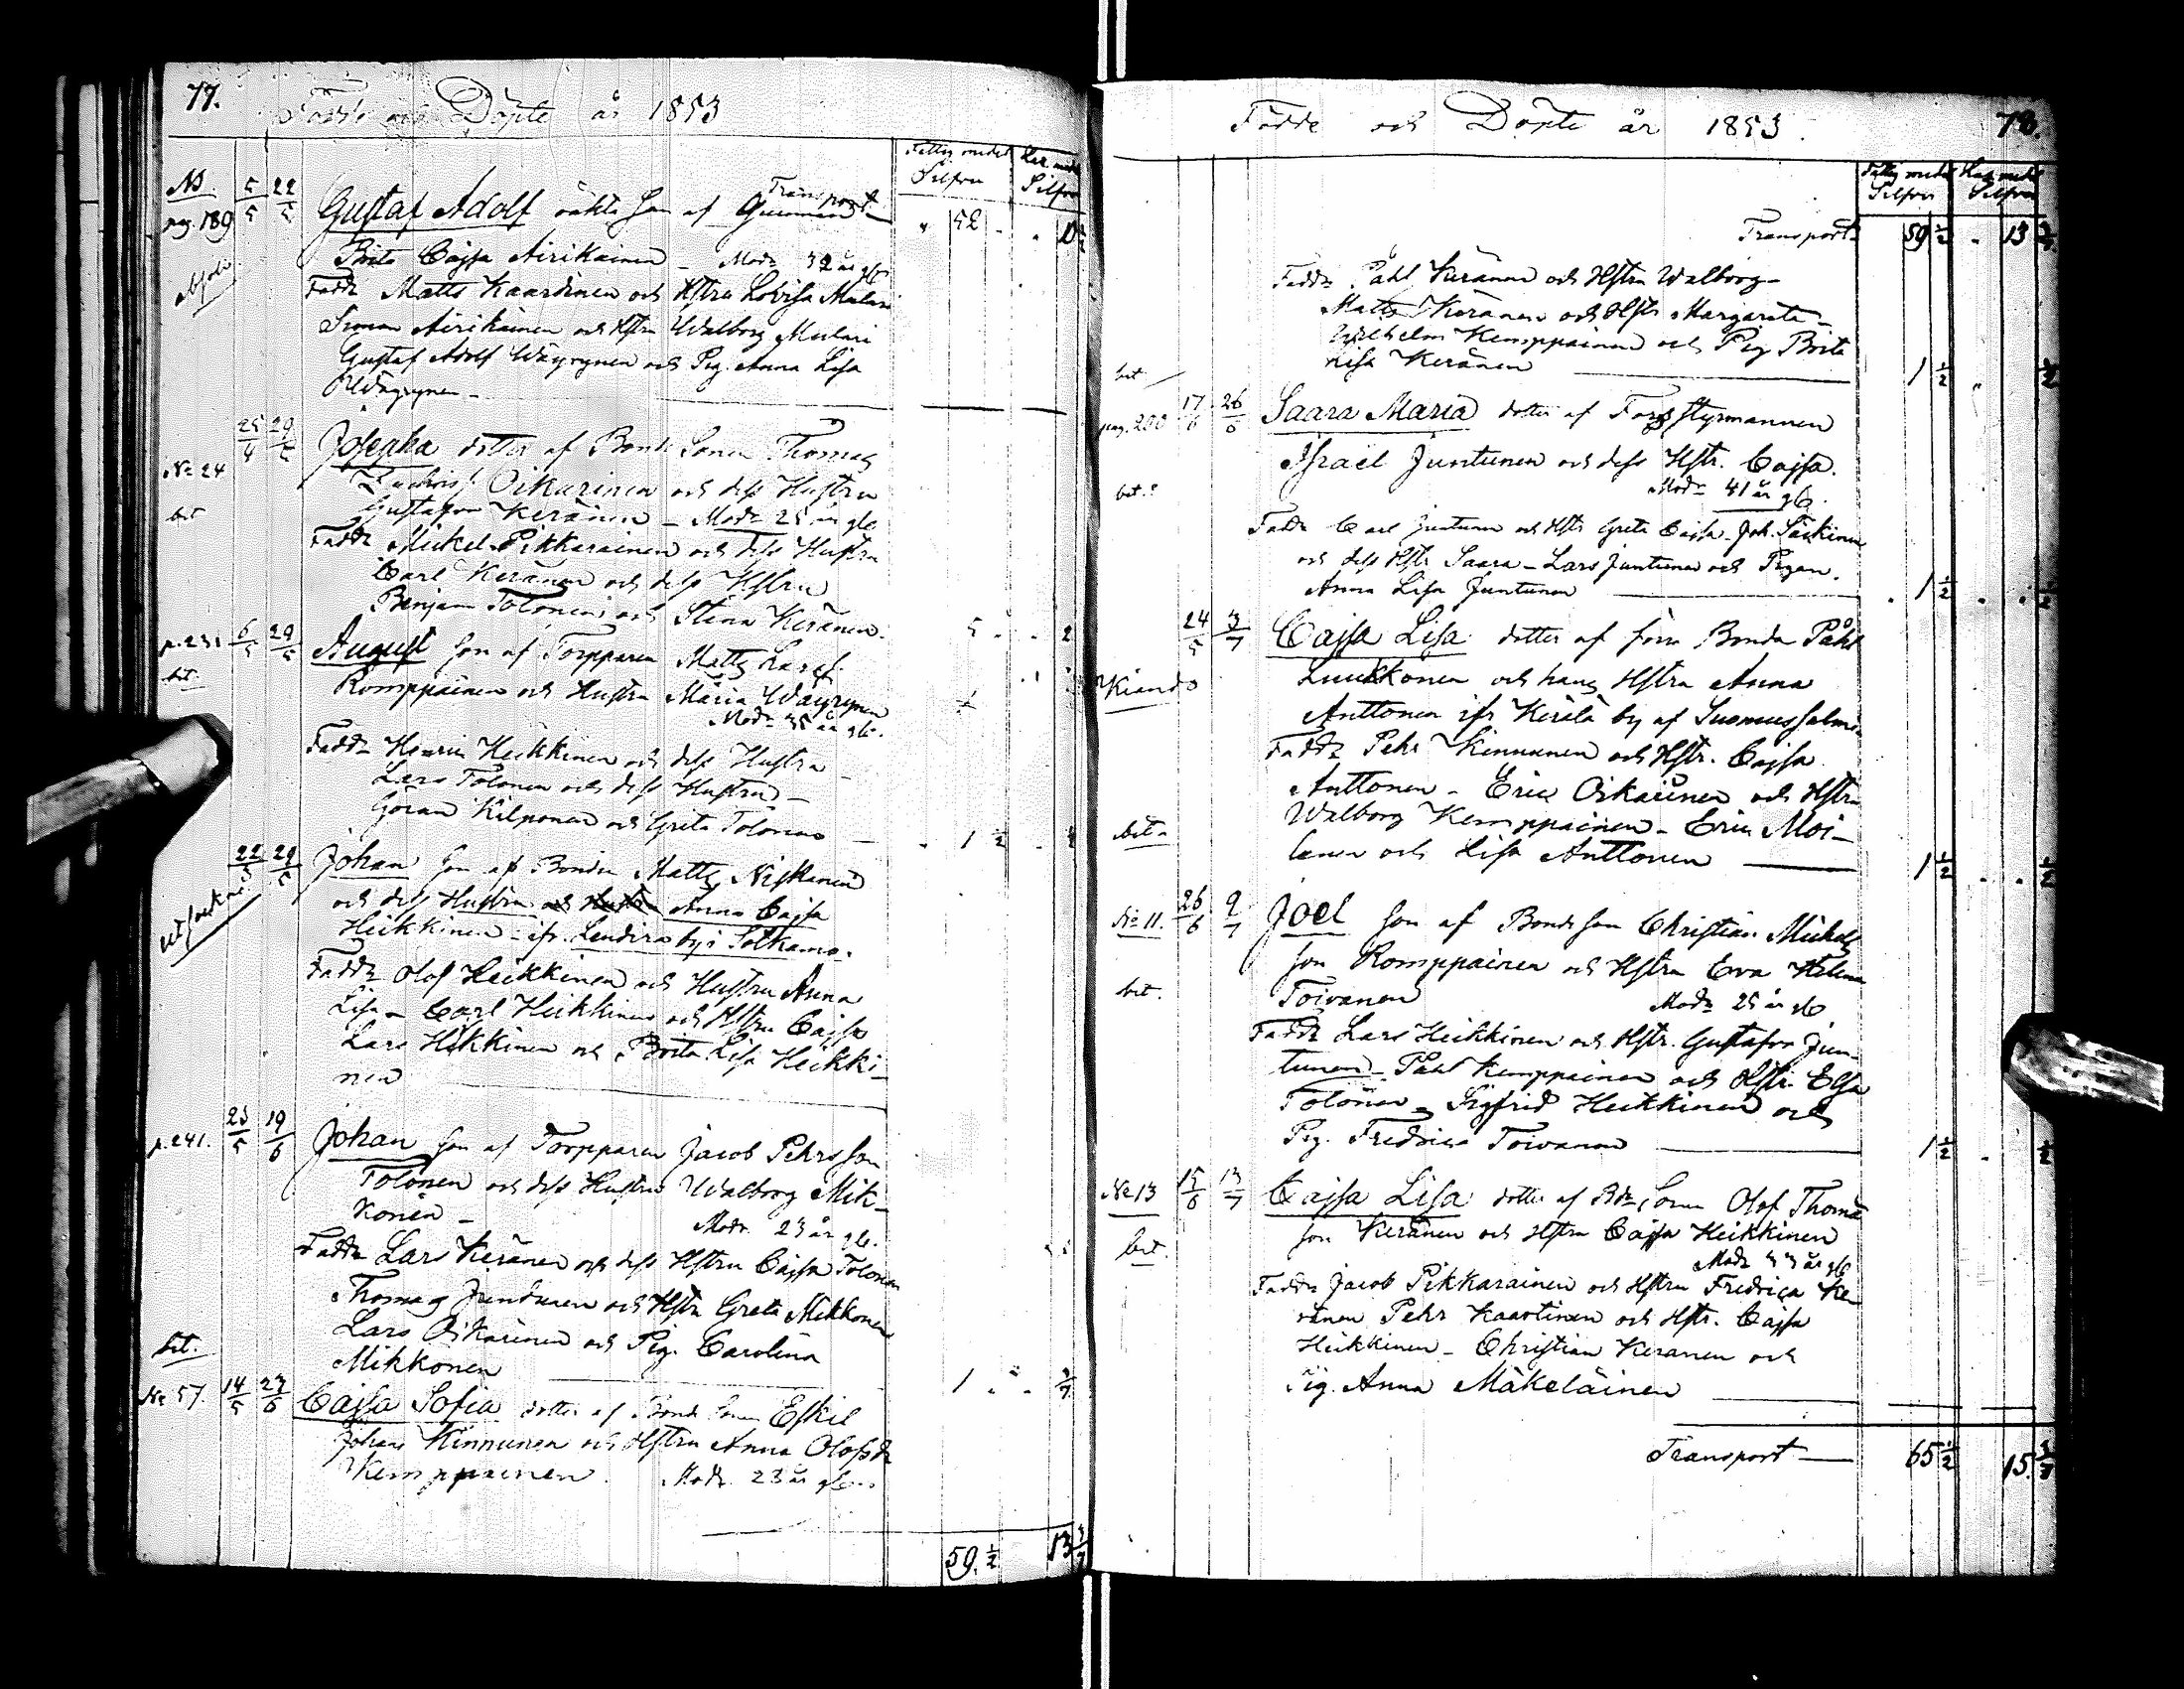 77.
Födde och Döpte år 1853
Fattig medel Silfver
Kyr. medel Silfver
Transport
52
No
pag. 189
5/5 22/5
Gustaf Adolf oäkta Son af
Brita Cajsa Airikainen – Modr 32 år gl.
Faddr Matts Kaardinen och Hstru Lovisa Mulari
Simon Airikainen och Hstru Walborg Mulari
Gustaf Adolf Wäyrynen och Pig. Anna Lisa
Wäyrynen –
No 24
bet
25/4 29/5
Josepha dotter af Bonde Sonen Thomas
Oikarinen och dess Hustru
Gustafva Keränen – Modr 25 år gl.
Faddr Mickel Pikkarainen och dess Hustru
Carl Keränen och dess Hstru
Benjam Tolonen och Stina Keränen.
5 2
p. 231
bet.
6/5 29/5
August Son af Torpparen Matts Larsf.
Romppainen och Hustru Maria Wäyrynen
Modr 35 år gl.
Faddr Henric Heikkinen och dess Hustru –
Lars Tolonen och dess Hustru –
Göran Kilponen och Greta Tolonen
1 1/2
22/5 29/5
Johan Son af Bonden Matts Niskanen
och dess Hustru och Hustru Anna Cajsa
Heikkinen – ifr. Lendira by i Sotkamo.
Faddr Olof Heikkinen och Hustru Anna
Lisa – Carl Heikkinen och Hstru Cajsa
Lars Heikkinen och Brita Lisa Heikki-
nen
p. 241.
23/5 19/6
Johan Son af Torpparen Jacob Pehrsson
Tolonen och dess Hustru Walborg Mik-
konen – Modr. 23 år gl.
Faddr Lars Keränen och dess Hstru Cajsa Tolonen
Thomas Juntunen och Hstru Greta Mikkonen
Lars Oikarinen och Pig. Carolina
Mikkonen
bet.
1
No 57.
14/5 23/6
Cajsa Sofia dotter af Bonde Sonen Eskil
Johans Kinnunen och Hstru Anna Olofsdr
Kemppainen. Modr. 23 år gl.
59 1/2 13
Födde och Döpte år 1853.
78.
Fattig medel Silfver
Transport 59 1/2 13
Faddr Påhl Keränen och Hstru Walborg –
Matts Keränen och Hstr Margareta –
Wilhelm Kemppainen och Pig Brita
Lisa Keränen
bet
1 1/2 1/2
pag. 200
bet.
17/6 26/6
Saara Maria dotter af Forsstyrmannen
Israel Juntunen och dess Hstr. Cajsa.
Modr 41 år gl.
Faddr Carl Juntunen och Hstr Greta Cajsa – Joh. Säikinen
och dess Hstr Saara – Lars Juntunen och Pigan.
Anna Lisa Juntunen
1 1/2 1/2
24/5 3/7
Kiando
Cajsa Lisa dotter af förra Bonden Påhl
Luukkonen och hans Hstru Anna
Anttonen ifr Kerälä by af Suomussalmi
Faddr Pehr Kinnunen och Hstr. Cajsa
Anttonen – Eric Oikarinen och Hstru
Walborg Kemppainen – Eric Moi-
lanen och Lisa Anttonen
bet
1 1/2 1/2
No 11.
bet.
26/6 9/7
Joel Son af Bonde Son Christian Mickels
son Romppainen och Hstru Eva Helena
Toivanen Modr 25 år gl
Faddr Lars Heikkinen och Hstr. Gustafva Jun-
tunen – Påhl Kemppainen och Hstr. Elsa
Tolonen – Sigfrid Heikkinen och
Pig. Fredrica Toivanen
1 1/2 1/2
No 13
bet.
15/6 13/7
Cajsa Lisa dotter af Bde Sonen Olof Thoma
son Keränen och Hstru Cajsa Heikkinen
Modr 33 år gl
Faddr Jacob Pikkarainen och Hstru Fredrica Ke-
ränen Pehr Kaartinen och Hstr. Cajsa
Heikkinen – Christian Keränen och
Pig. Anna Mäkeläinen
Transport – 65 1/2 15